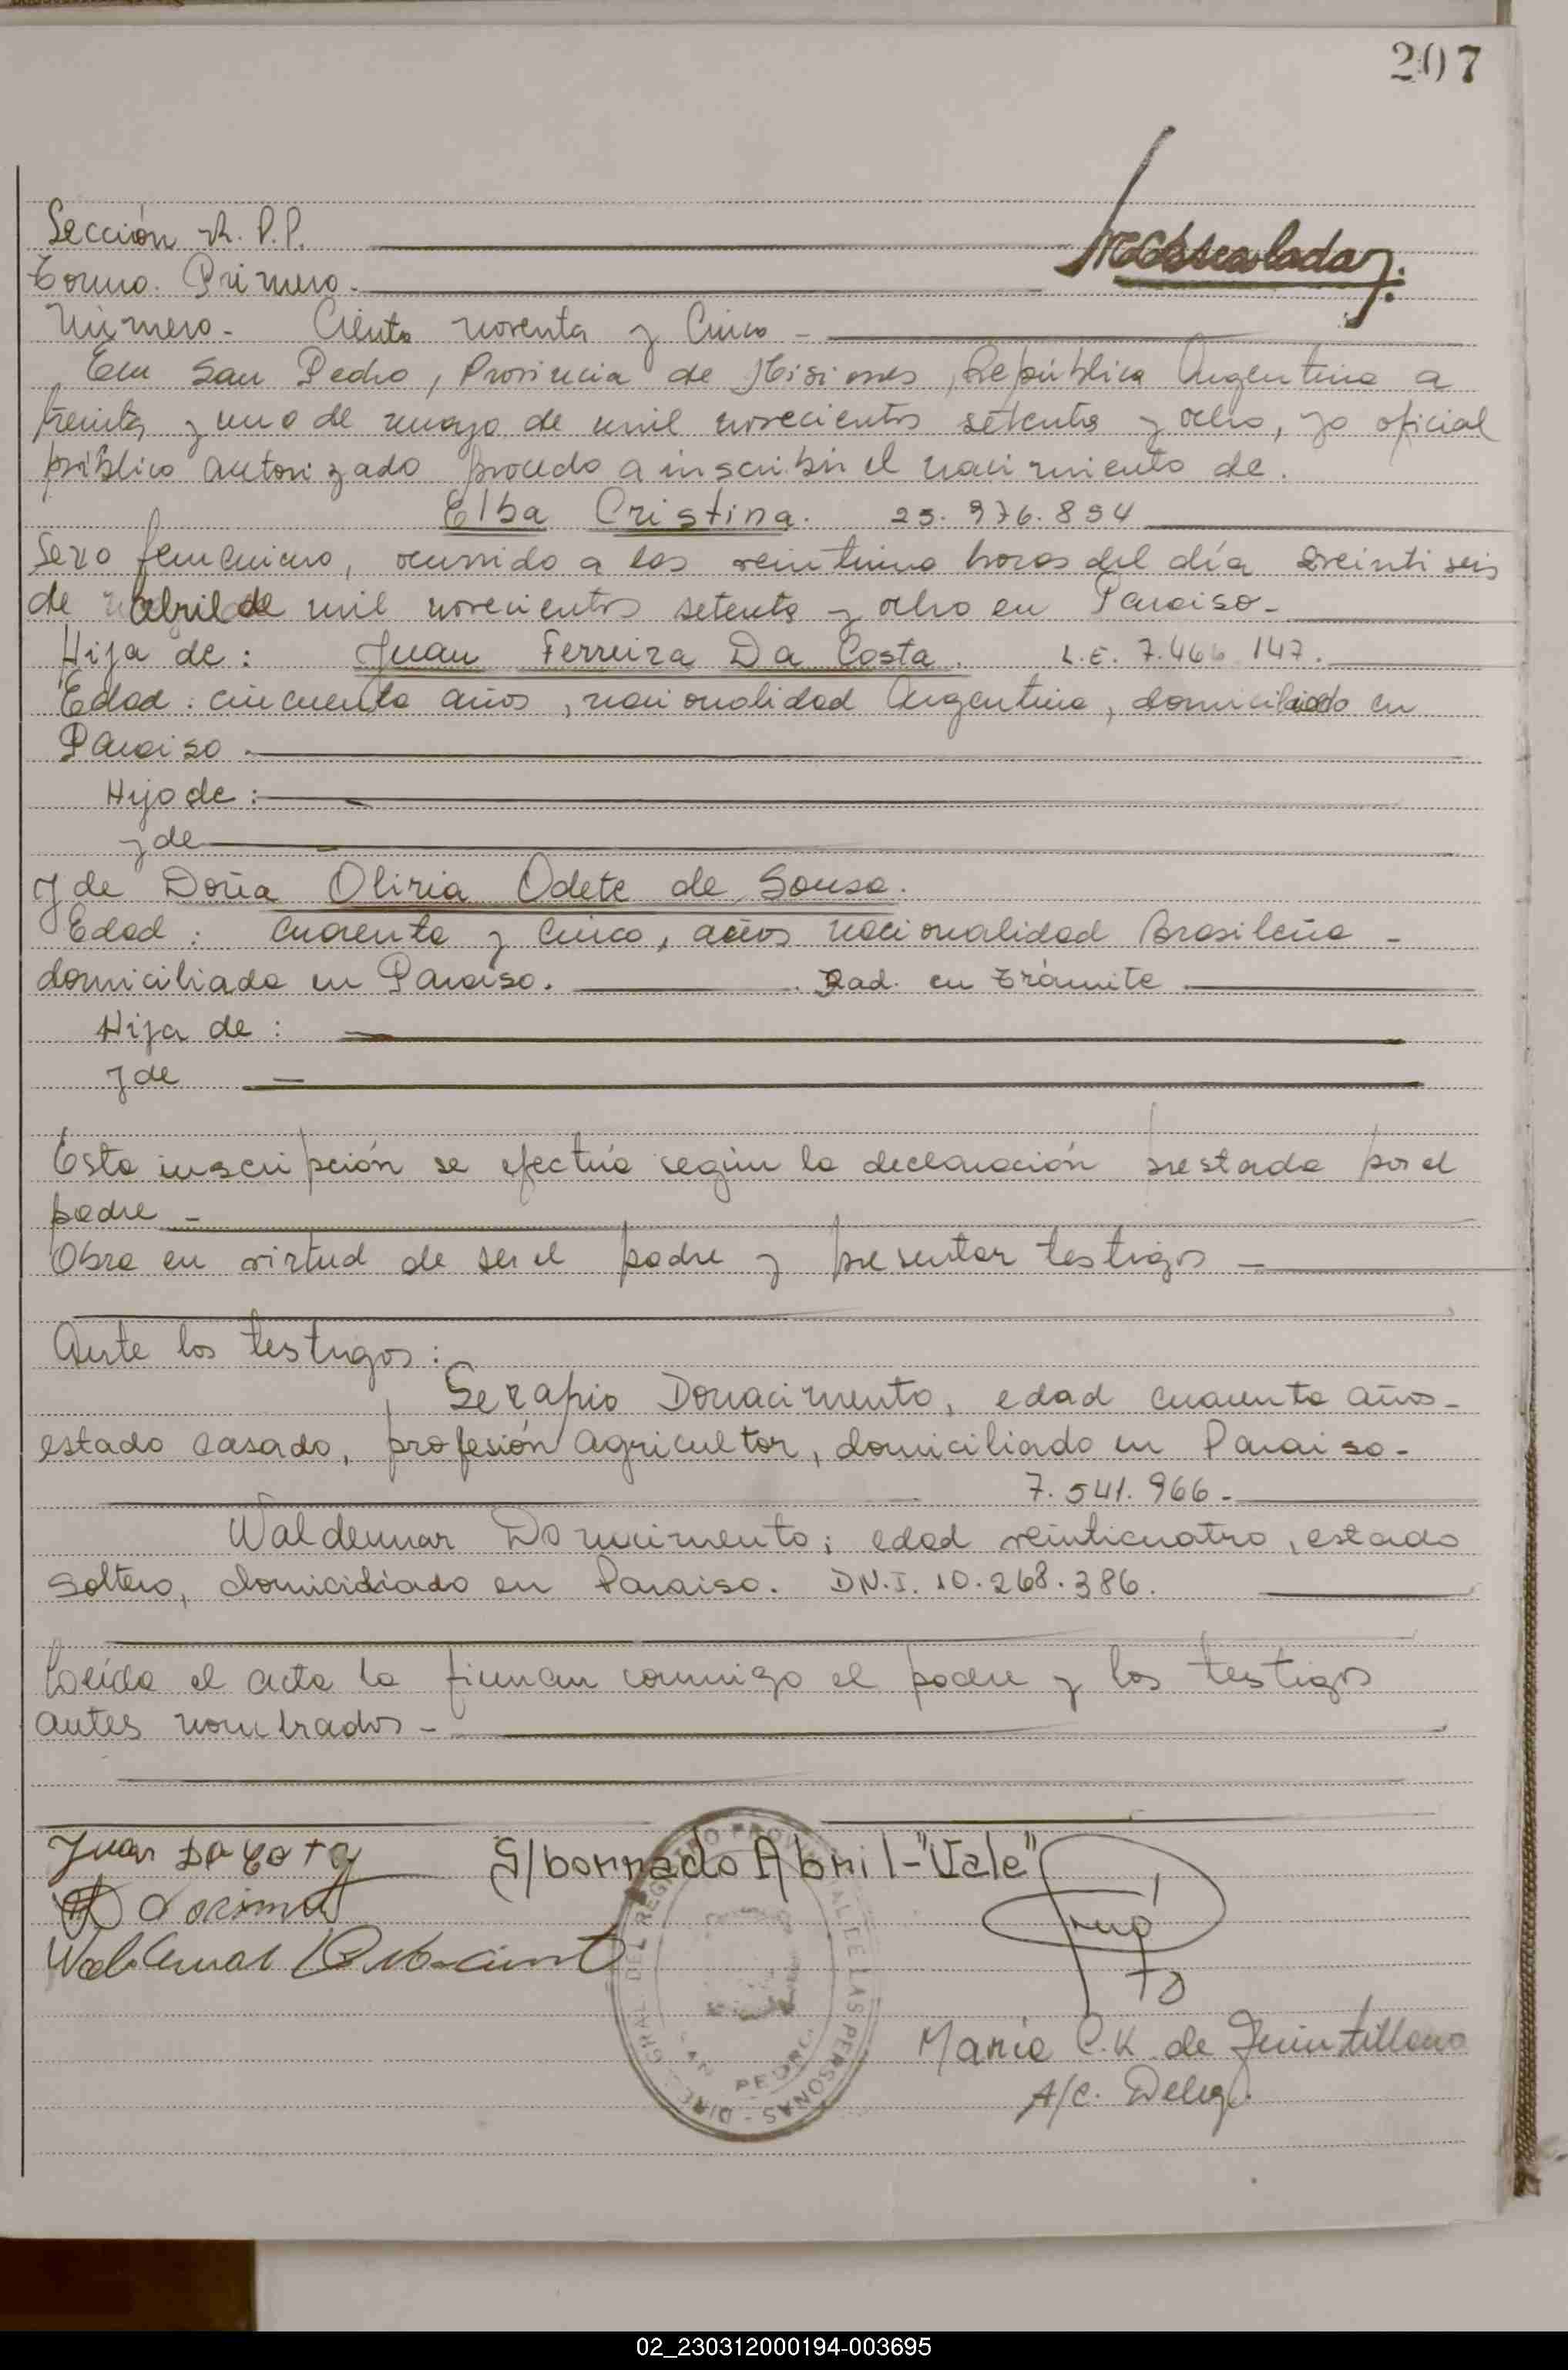 207
Sección R. P.P.
Tomo. Primero.
Número - Ciento noventa y Cinco -
En San Pedro, Provincia de Misiones, República Argentina a
treinta y uno de mayo de mil novecientos setenta y ocho, yo oficial
público autorizado procedo a inscribir el nacimiento de.
Elba Cristina. 25.976.894
Sexo femenino, ocurrido a las veintiuna horas del día veintiseis
de abril de mil novecientos setenta y ocho en Paraiso-
Hija de: Juan Ferreira Da Costa. L.E. 7.466 147.
Edad: cincuenta años, nacionalidad Argentina, domiciliado en
Paraiso.
Hijo de:
y de
y de Doña Oliria Odete de Sousa.
Edad: cuarenta y cinco, años nacionalidad Brasileña -
domiciliada en Paraiso. Rad. en trámite
Hija de:
y de
Esta inscripción se efectúa según la declaración prestada por el
padre -
Obra en virtud de ser el padre y presentar testigos -
Ante los testigos:
Serapio Donacimento, edad cuarenta años-
estado casado, profesión agricultor, domiciliado en Paraiso-
7.541.966-
Waldemar Donacimento; edad veinticuatro, estado
soltero, domiciliado en Paraiso. DN.I. 10.268.386.
Leída el acta la firman conmigo el padre y los testigos
antes nombrados-
Juan Da Costa
S/borrado Abril-"Vale"
Waldemar
DIREC. GRAL. DEL REGISTRO PROVINCIAL DE LAS PERSONAS -
SAN PEDRO
María C.K. de Quintillano
A/C. Deleg.
02_230312000194-003695